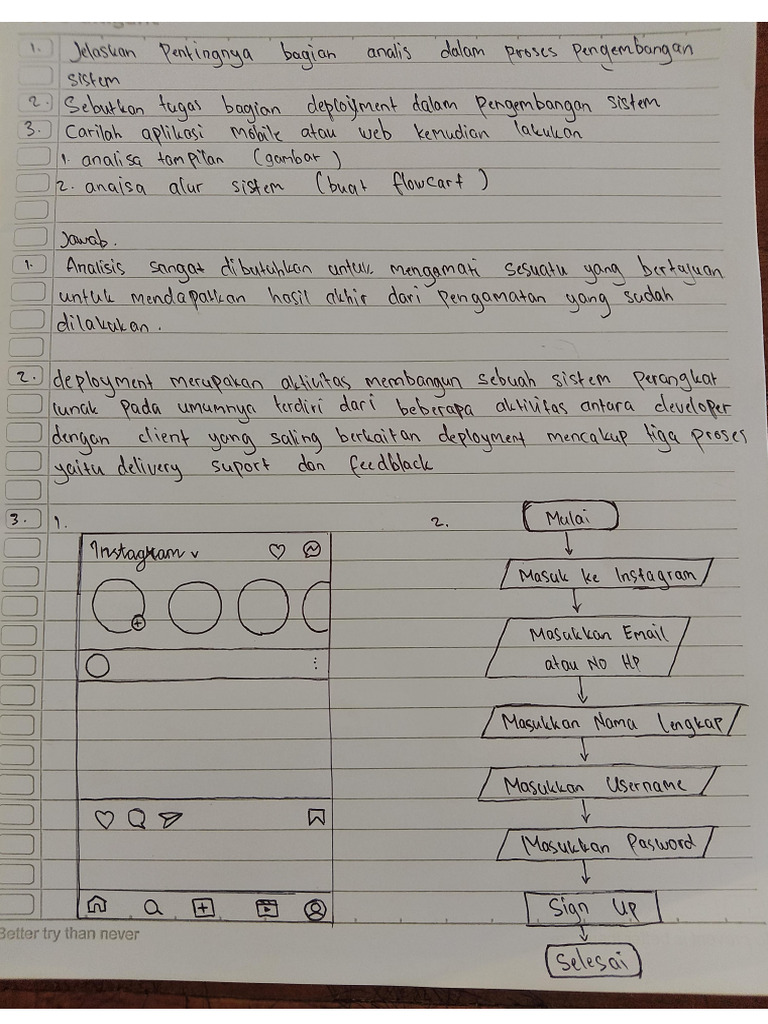 1. Jelaskan Pentingnya bagian analis dalam proses pengembangan
sistem
2. Sebutkan tugas bagian deployment dalam pengembangan sistem
3. Carilah aplikasi mobile atau web kemudian lakukan
1. analisa tampilan (gambar)
2. anaisa alur sistem (buat flowcart)
Jawab.
1. Analisis sangat dibutuhkan untuk mengamati sesuatu yang bertujuan
untuk mendapatkan hasil akhir dari pengamatan yang sudah
dilakukan.
2. deployment merupakan aktivitas membangun sebuah sistem perangkat
lunak pada umumnya terdiri dari beberapa aktivitas antara developer
dengan client yang saling berkaitan deployment mencakup tiga proses
yaitu delivery suport dan feedblack
3. 1.
Instagram
2.
Mulai
Masuk ke Instagram
Masukkan Email
atau No HP
Masukkan Nama Lengkap
Masukkan Username
Masukkan Pasword
Sign Up
Selesai
Better try than never